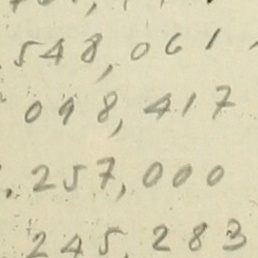 548,061
098,417
.257,000
245,283